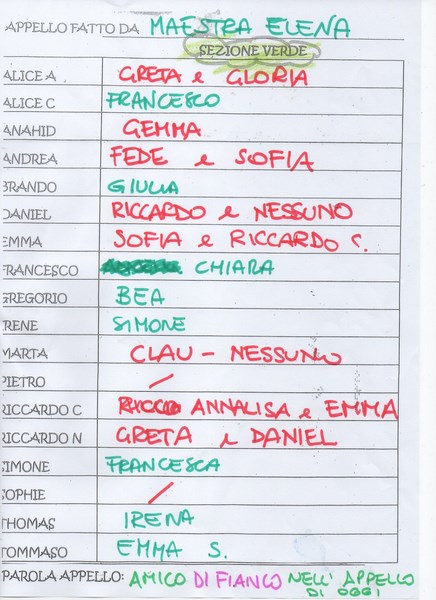 APPELLO FATTO DA MAESTRA ELENA
SEZIONE VERDE
ALICE A GRETA e GLORIA
ALICE C FRANCESCO
ANAHID GEMMA
ANDREA FEDE e SOFIA
BRANDO GIULIA
DANIEL RICCARDO e NESSUNO
EMMA SOFIA e RICCARDO C.
FRANCESCO CHIARA
GREGORIO BEA
IRENE SIMONE
MARTA CLAU - NESSUNO
PIETRO /
RICCARDO C ANNALISA e EMMA
RICCARDO N GRETA e DANIEL
SIMONE FRANCESCA
SOPHIE /
THOMAS IRENA
TOMMASO EMMA S.
PAROLA APPELLO: AMICO DI FIANCO NELL'APPELLO
DI OGGI